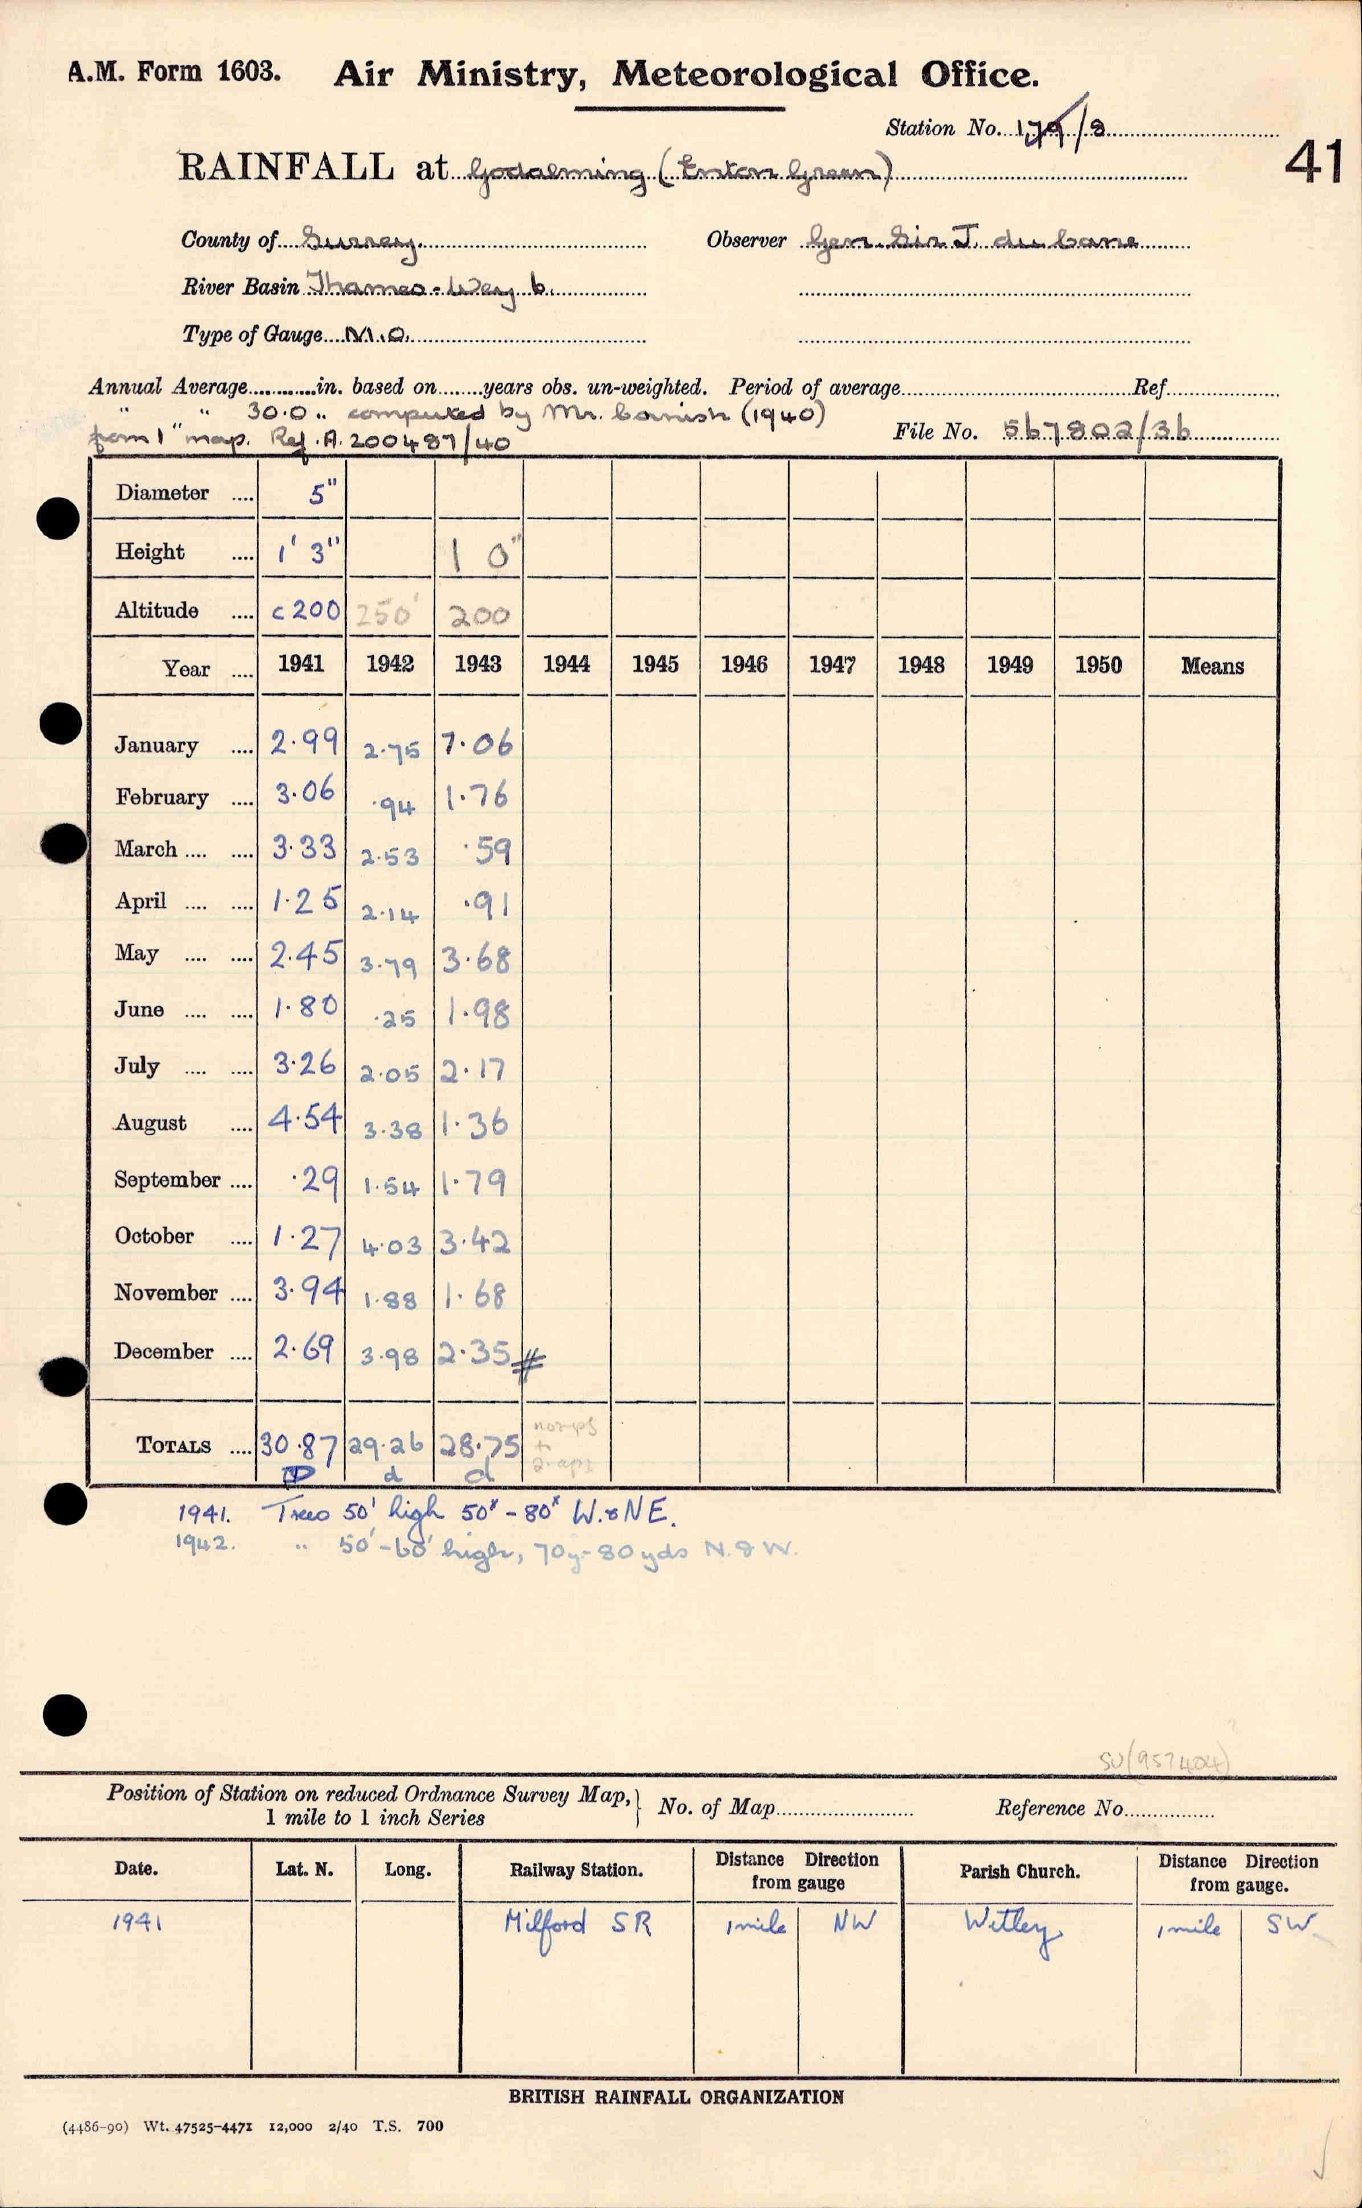 A.M. Form 1603. Air Ministry, Meteorological Office.
Station No. 179/8
41
RAINFALL at Godalming (Enton Green)
County of Surrey. Observer Gen. Sir J. du Cane
River Basin Thames - Wey b.
Type of Gauge M.O.
Annual Average in. based on years obs. un-weighted. Period of average Ref.
" " 30.0 .. computed by Mr. Cornish (1940)
from 1" map. Ref. A. 200487/40 File No. 567802/36
Diameter 5"
Height 1' 3" 1 0"
Altitude c200 250' 200
Year 1941 1942 1943 1944 1945 1946 1947 1948 1949 1950 Means
January 2.99 2.75 7.06
February 3.06 .94 1.76
March 3.33 2.53 .59
April 1.25 2.14 .91
May 2.45 3.79 3.68
June 1.80 .25 1.98
July 3.26 2.05 2.17
August 4.54 3.38 1.36
September .29 1.54 1.79
October 1.27 4.03 3.42
November 3.94 1.88 1.68
December 2.69 3.98 2.35 #
TOTALS 30.87 29.26 28.75
d d
1941. Trees 50' high 50x - 80x W. & N E.
1942. .. 50'-60' high, 70y-80yds N. & W.
SU(957404)
Position of Station on reduced Ordnance Survey Map, 1 mile to 1 inch Series } No. of Map Reference No.
Date. Lat. N. Long. Railway Station. Distance Direction from gauge Parish Church. Distance Direction from gauge.
1941 Milford SR 1 mile NW Witley 1 mile SW
BRITISH RAINFALL ORGANIZATION
(4486-90) Wt. 47525-4471 12,000 2/40 T.S. 700